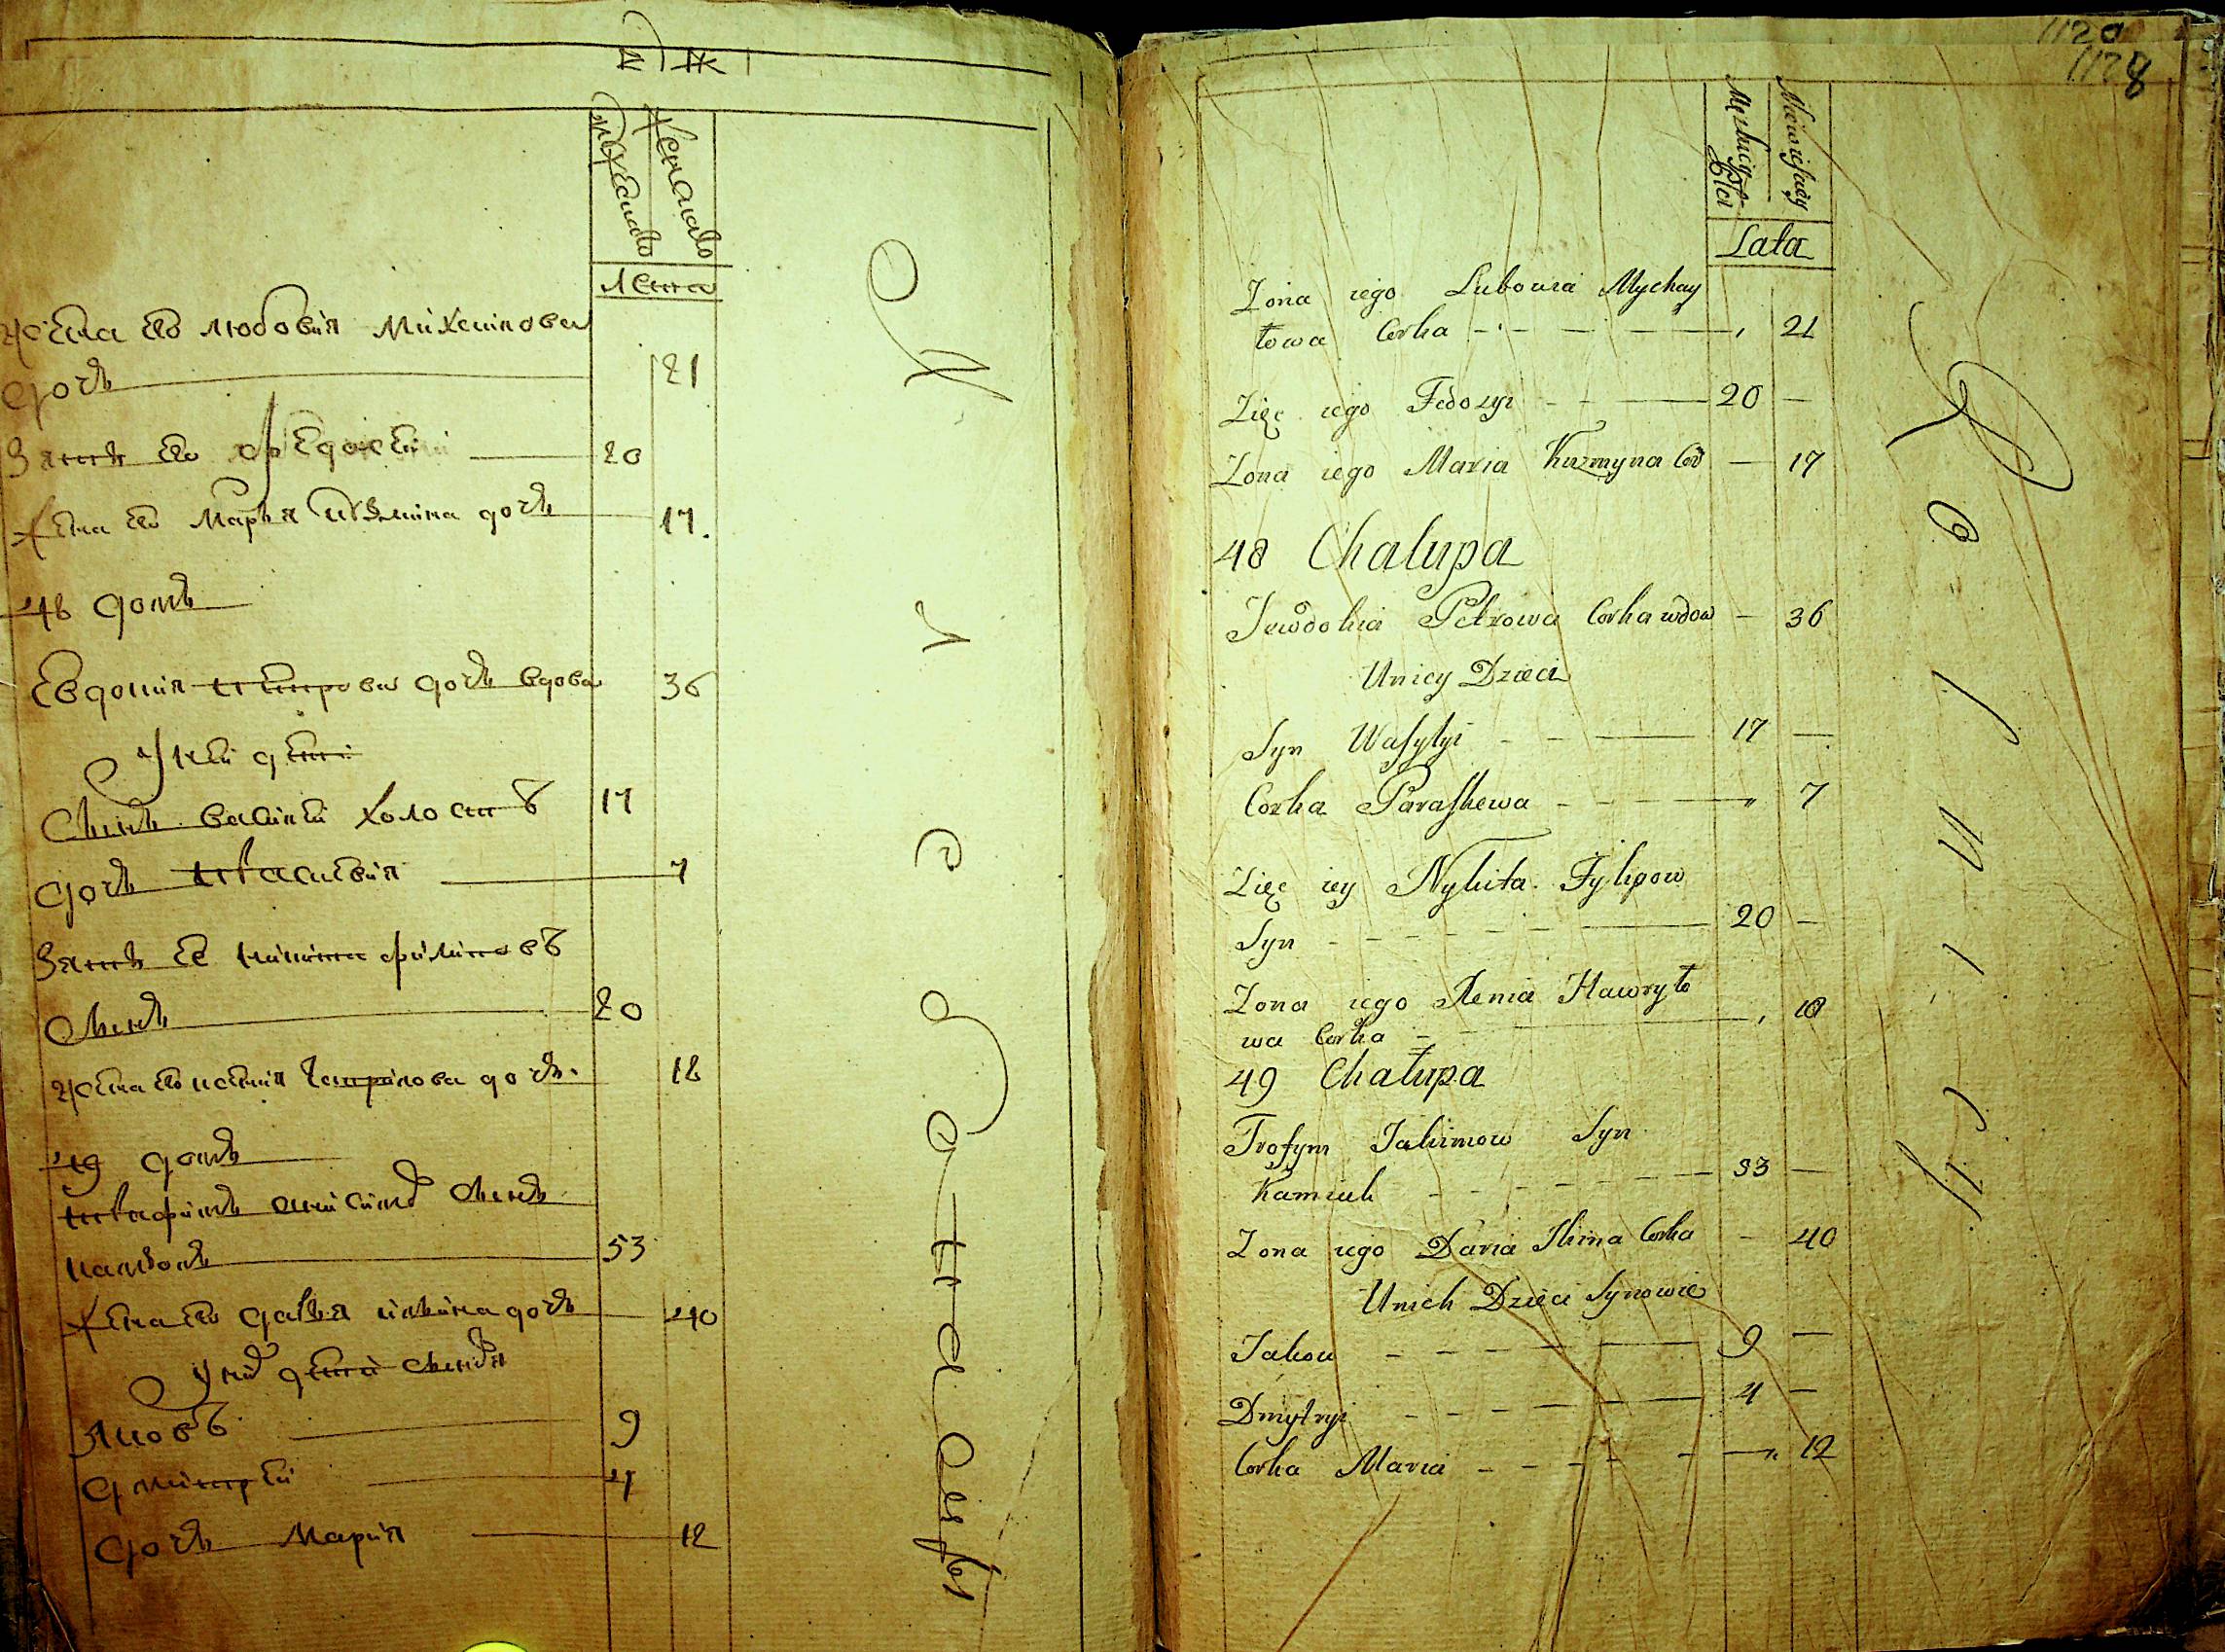 Мужеска
Женска
Лета
Жена его Любовия Михаилова
дочь 21
Зять его Федосей 20
Жена его Марья Кузмина дочь 17.
48 домъ
Евдокия Петрова дочь вдова 36
У ней дети
Сынъ Василей холостъ 17
Дочь Парасковия 7
Зять ее Никита Филиповъ
Сынъ 20
Жена его Ксения Гаврилова дочь. 18
49 домъ
Трофимъ сынъ
53
Жена его Дарья Ильина дочь 40
У них дети сыновья
Яковъ 9
Дмитрей 4
Дочь Мария 12
1128
Lata
Zona iego Lubowia Mychay
łowa Corka 21
Zięc iego Fedozyi 20
Zona iego Maria Kuzmyna Cor 17
48 Chalupa
Jewdokia Petrowa Corka wdow 36
Uniey Dzieci
Syn Wasylyi 17
Corka Paraskewa 7
Zięc iey Nykita Fylipow
Syn 20
Zona iego Xenia Hawryło
wa Corka 18
49 Chałupa
Trofym Jakimow Syn
53
Zona iego Daria Ilina Corka 40
Unich Dzieci Synowie
Jakow 9
Dmytryi 4
Corka Maria 12